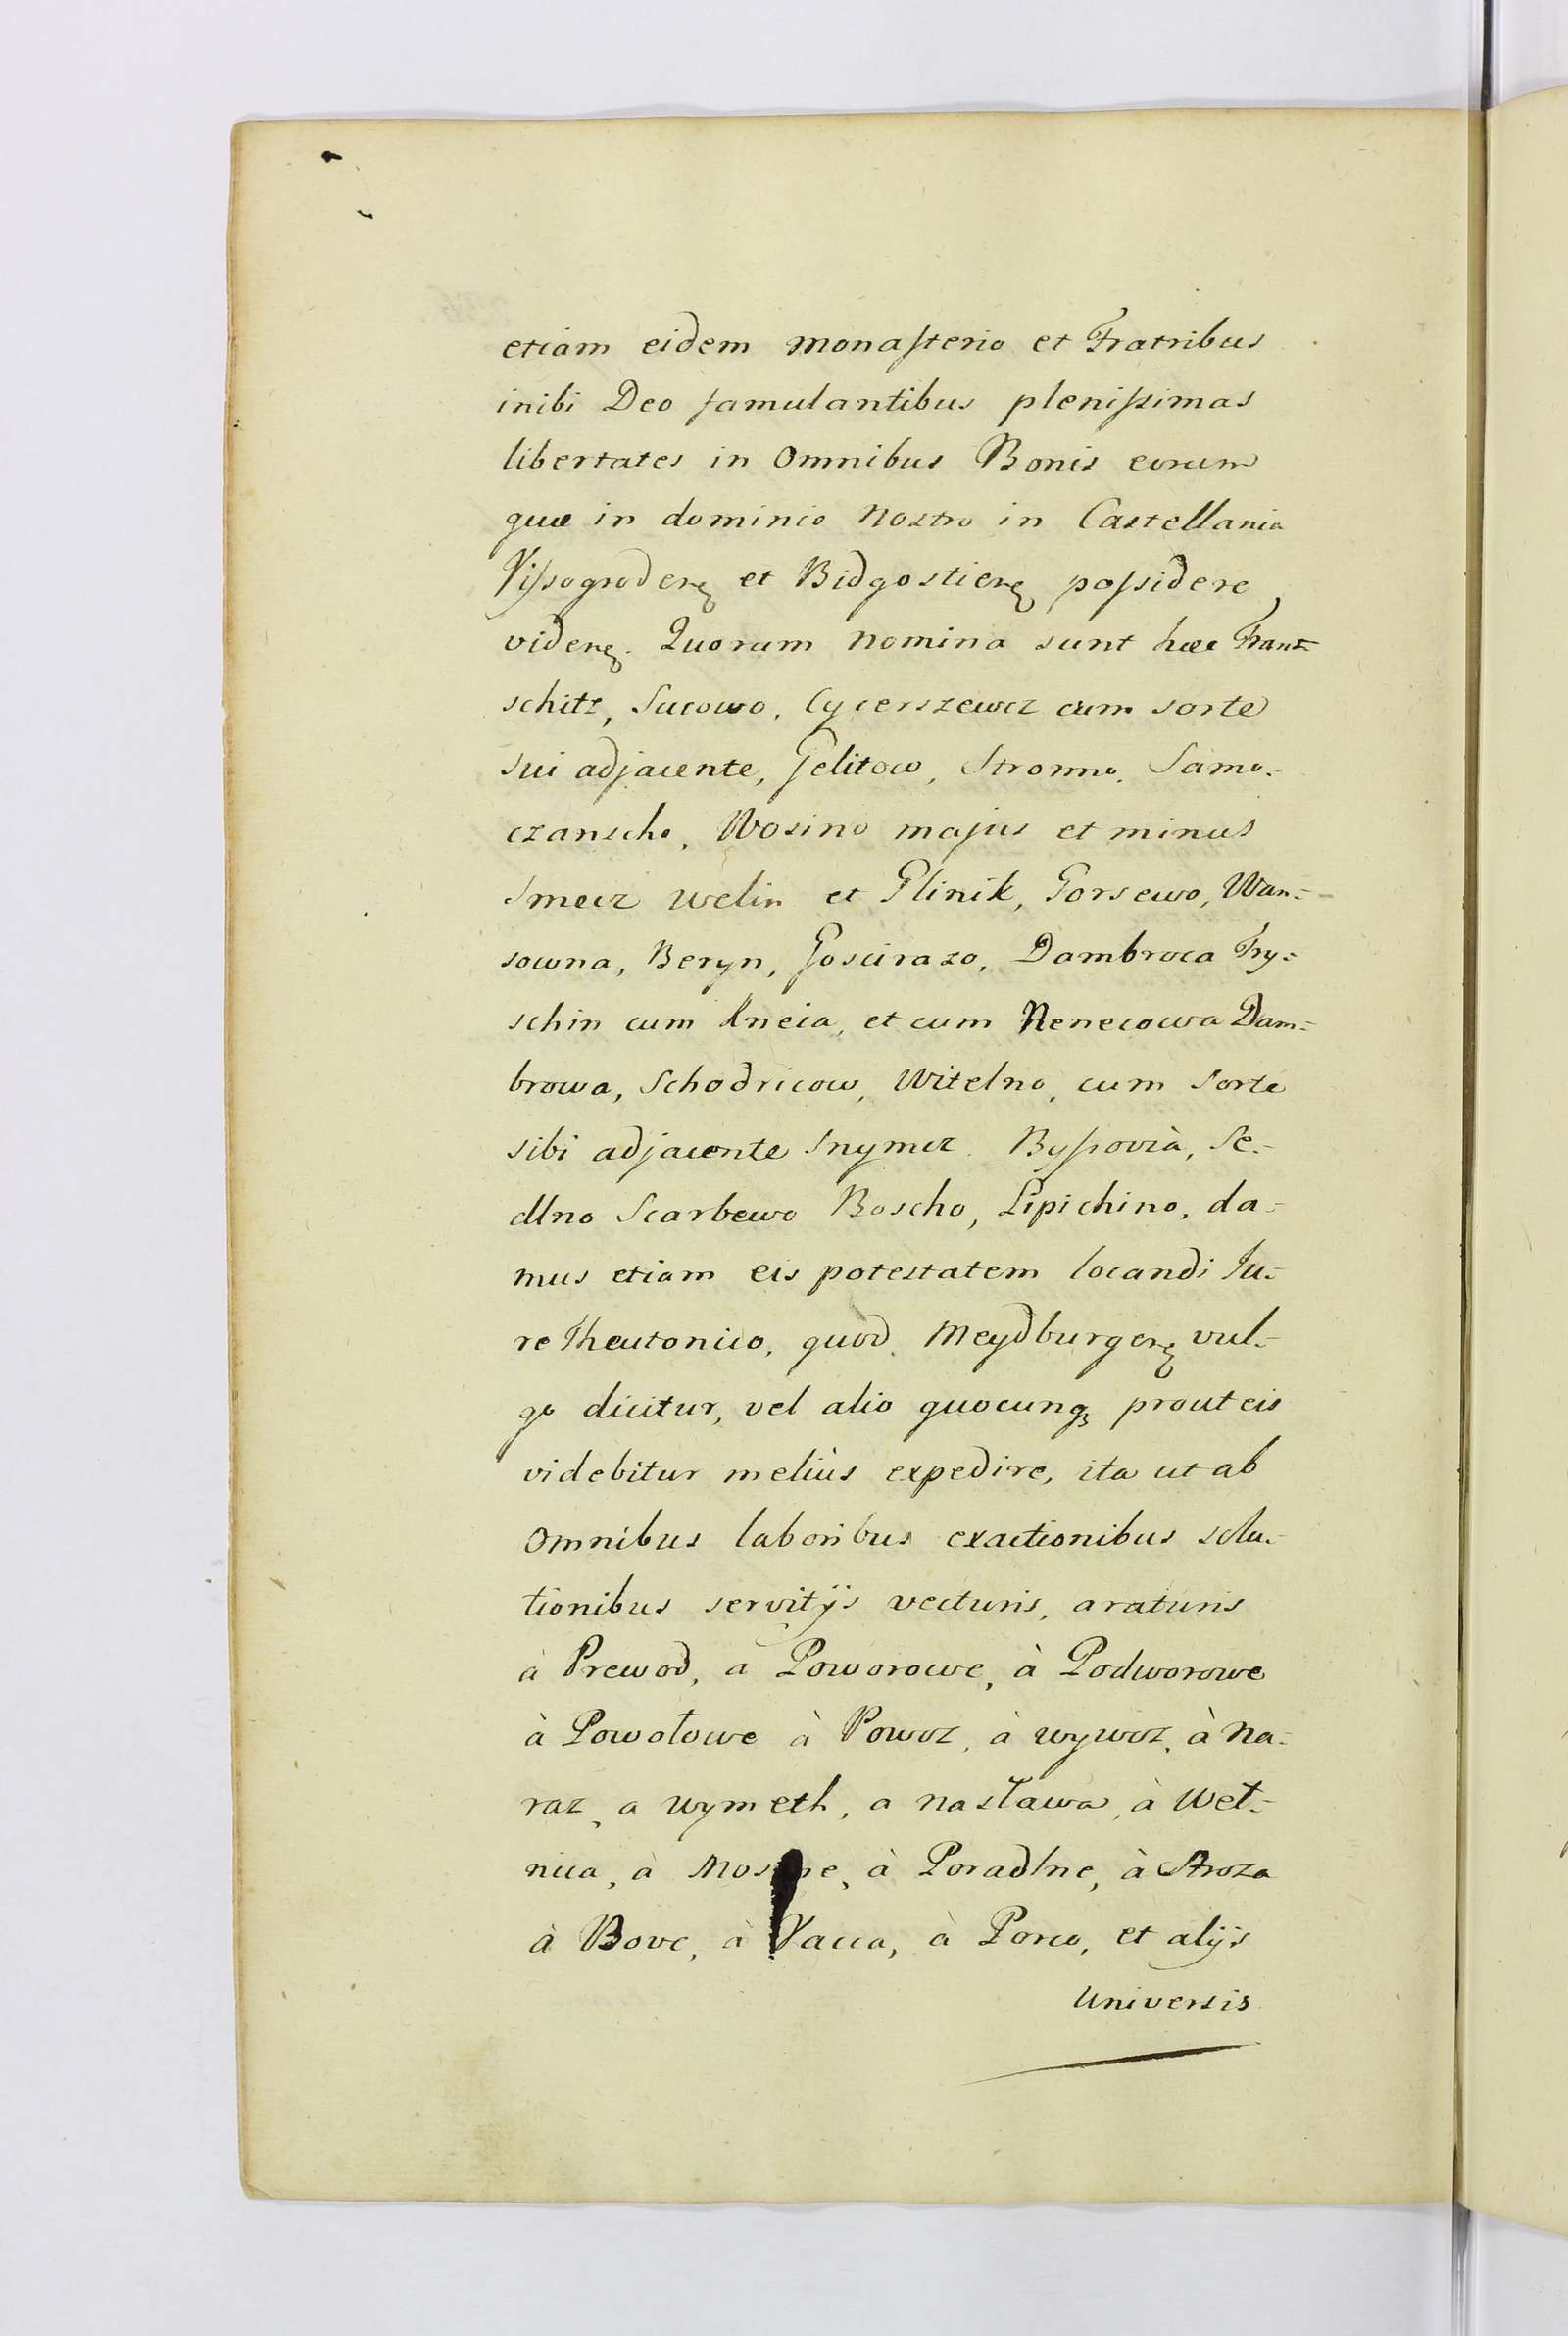 etiam eidem monasterio et Fratribus
inibi Deo famulantibus plenissimas
libertates in Omnibus Bonis eorum
quæ in dominio nostro in Castellania
Vissogrodenę et Bidgostienę possidere
videnę. Quorum nomina sunt hæc Frant-
schitz, Sucowo, Cycerszewcz cum sorte
sui adjacente, Gelitow, Stronno, Samo-
czanscho, Wosino majus et minus
Smecz Welin et Glinik, Gorsewo, Wan-
sowna, Beryn, Goscirazo, Dambroca Try-
schin cum Kneia, et cum Nenecowa Dam-
browa, Schodricow, Witelno, cum sorte
sibi adjacente Snymcz Byssovia, Se-
dlno Scarbewo Boscho, Lipichino, da-
mus etiam eis potestatem locandi Ju-
re Theutonico, quod Meydburgenę vul-
go dicitur, vel alio quocunq₃ prout eis
videbitur meliùs expedire, ita ut ab
Omnibus laboribus exactionibus solu-
tionibus servitÿs vecturis, araturis
à Prewod, a Poworowe, à Podworowe
à Powołowe à Powoz, à wywoz, à Na-
raz, a wymeth, a nasława, à Wet-
nica, à à Poradlne, à Stroza
à Bove, à Vacca, à Porco, et alÿs
Universis